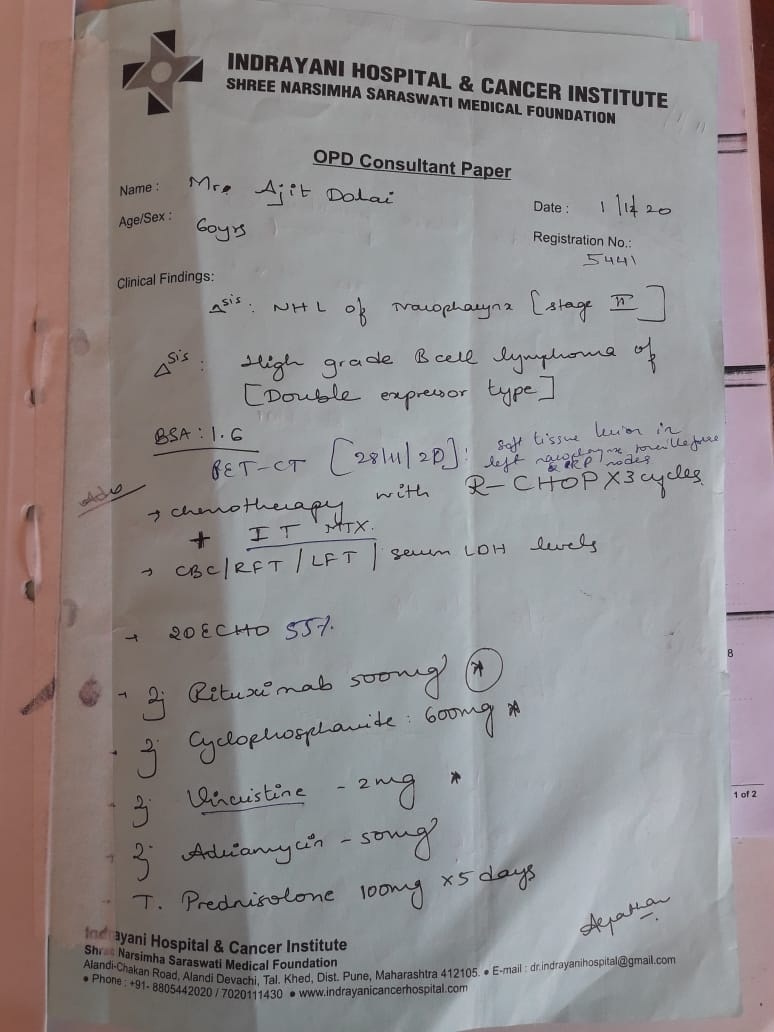 INDRAYANI HOSPITAL & CANCER INSTITUTE
SHREE NARSIMHA SARASWATI MEDICAL FOUNDATION
OPD Consultant Paper
Name : Mr. Ajit Dalai
Date : 1/12/20
Age/Sex : 60yrs
Registration No.:
5441
Clinical Findings:
Δsis : NHL of Nasopharynx [stage II]
Δsis : High grade B cell lymphoma of
[Double expressor type]
BSA : 1.6
PET-CT [28/11/20] : soft tissue lesion in
left nasopharynx
& RP nodes
Adv
→ chemotherapy with R-CHOP X 3 cycles
+ IT MTX.
→ CBC/RFT/LFT/serum LDH levels
→ 2D ECHO 55%.
Rituximab 500mg *
Cyclophosphamide : 600mg *
Vincristine - 2mg *
Adriamycin - 50mg
T. Prednisolone 100mg x5 days
ayani Hospital & Cancer Institute
Narsimha Saraswati Medical Foundation
Alandi-Chakan Road, Alandi Devachi, Tal. Khed, Dist. Pune, Maharashtra 412105. • E-mail : dr.indrayanihospital@gmail.com
• Phone : +91- 8805442020 / 7020111430 • www.indrayanicancerhospital.com
8
1 of 2